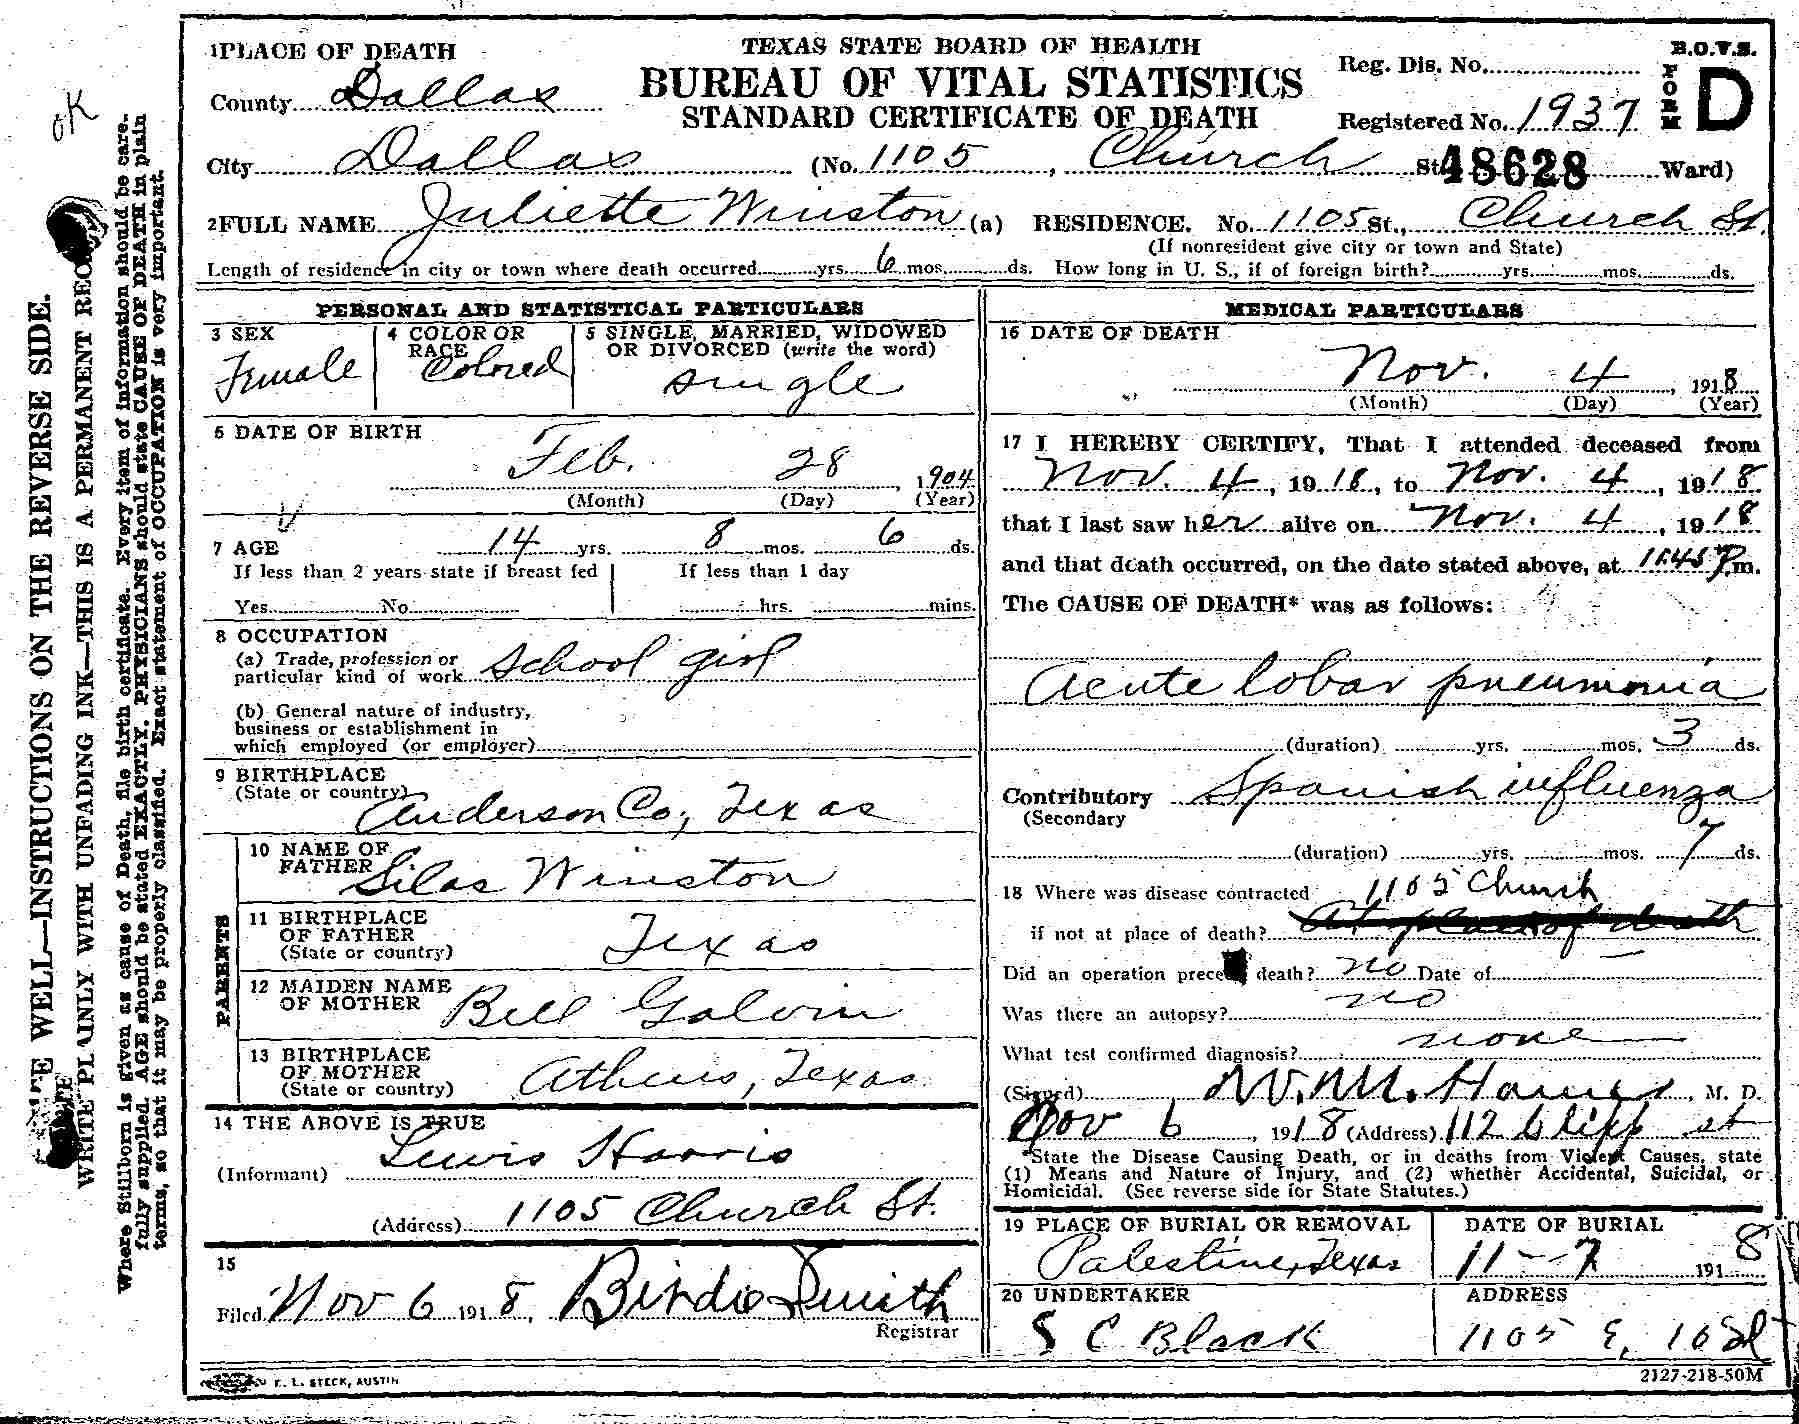 1 PLACE OF DEATH
TEXAS STATE BOARD OF HEALTH
B.O.V.S.
FORM D
BUREAU OF VITAL STATISTICS
STANDARD CERTIFICATE OF DEATH
Reg. Dis. No.
County Dallas
Registered No. 1937
City Dallas (No. 1105, Church St. 48628 Ward)
2 FULL NAME Juliette Winston (a) RESIDENCE. No. 1105 St., Church St.
(If nonresident give city or town and State)
Length of residence in city or town where death occurred yrs. 6 mos. ds. How long in U. S., if of foreign birth? yrs. mos. ds.
PERSONAL AND STATISTICAL PARTICULARS
3 SEX
Female
4 COLOR OR RACE
Colored
5 SINGLE, MARRIED, WIDOWED
OR DIVORCED (write the word)
single
6 DATE OF BIRTH
Feb. 28, 1904
(Month) (Day) (Year)
7 AGE 14 yrs. 8 mos. 6 ds.
If less than 2 years state if breast fed
Yes No
If less than 1 day
hrs. mins.
8 OCCUPATION
(a) Trade, profession or
particular kind of work School girl
(b) General nature of industry,
business or establishment in
which employed (or employer)
9 BIRTHPLACE
(State or country)
Anderson Co., Texas
PARENTS
10 NAME OF
FATHER Silas Winston
11 BIRTHPLACE
OF FATHER
(State or country) Texas
12 MAIDEN NAME
OF MOTHER Bell Galvin
13 BIRTHPLACE
OF MOTHER
(State or country) Athens, Texas
14 THE ABOVE IS TRUE
(Informant) Lewis Harris
(Address) 1105 Church St.
15
Filed Nov 6 1918, Birdie Smith
Registrar
MEDICAL PARTICULARS
16 DATE OF DEATH
Nov. 4, 1918
(Month) (Day) (Year)
17 I HEREBY CERTIFY, That I attended deceased from
Nov. 4, 1918, to Nov. 4, 1918
that I last saw her alive on Nov. 4, 1918
and that death occurred, on the date stated above, at 11:45 P.m.
The CAUSE OF DEATH* was as follows:
Acute lobar pneumonia
(duration) yrs. mos. 3 ds.
Contributory Spanish influenza
(Secondary
(duration) yrs. mos. 7 ds.
18 Where was disease contracted 1105 Church
if not at place of death? At place of death
Did an operation precede death? no Date of
Was there an autopsy? no
What test confirmed diagnosis? none
(Signed) W. M. , M. D.
Nov 6, 1918 (Address) 112 Cliff st
*State the Disease Causing Death, or in deaths from Violent Causes, state
(1) Means and Nature of Injury, and (2) whether Accidental, Suicidal, or
Homicidal. (See reverse side for State Statutes.)
19 PLACE OF BURIAL OR REMOVAL
Palestine, Texas
DATE OF BURIAL
11-7 1918
20 UNDERTAKER
S C Black
ADDRESS
1105 E. 10 St
E. L. STECK, AUSTIN
2127-218-50M
OK
WELL—INSTRUCTIONS ON THE REVERSE SIDE.
WRITE PLAINLY WITH UNFADING INK—THIS IS A PERMANENT RECORD
Where Stillborn is given as cause of Death, file birth certificate. Every item of information should be care-
fully supplied. AGE should be stated EXACTLY. PHYSICIANS should state CAUSE OF DEATH in plain
terms, so that it may be properly classified. Exact statement of OCCUPATION is very important.